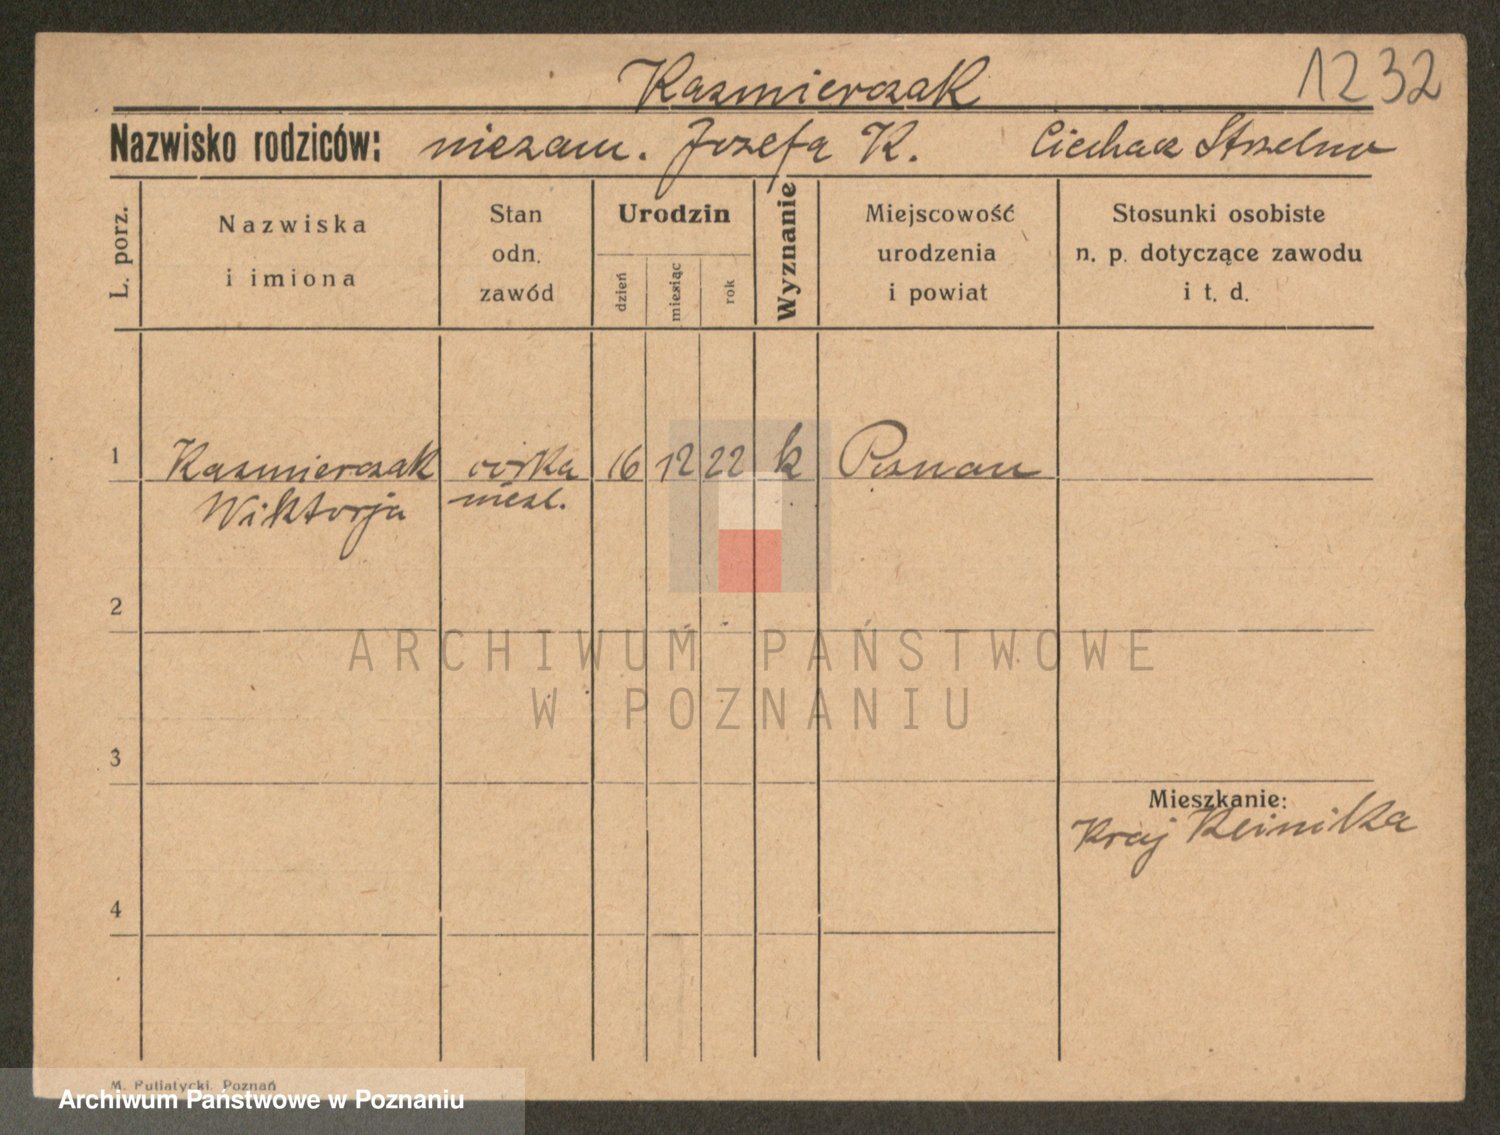 Kazmierczak
1232
Nazwisko rodziców: niezam. Jozefa K. Ciechacz Strzelno
L. porz.
Nazwiska
i imiona
Stan
odn.
zawód
Urodzin
dzień
miesiąc
rok
Wyznanie
Miejscowość
urodzenia
i powiat
Stosunki osobiste
n. p. dotyczące zawodu
i t. d.
1 Kazmierczak córka 16 12 22 k Poznan
Wiktorja
2
ARCHIWUM PAŃSTWOWE
W POZNANIU
3
Mieszkanie:
Kraj Klinika
4
M. Putiatycki, Poznań
Archiwum Państwowe w Poznaniu